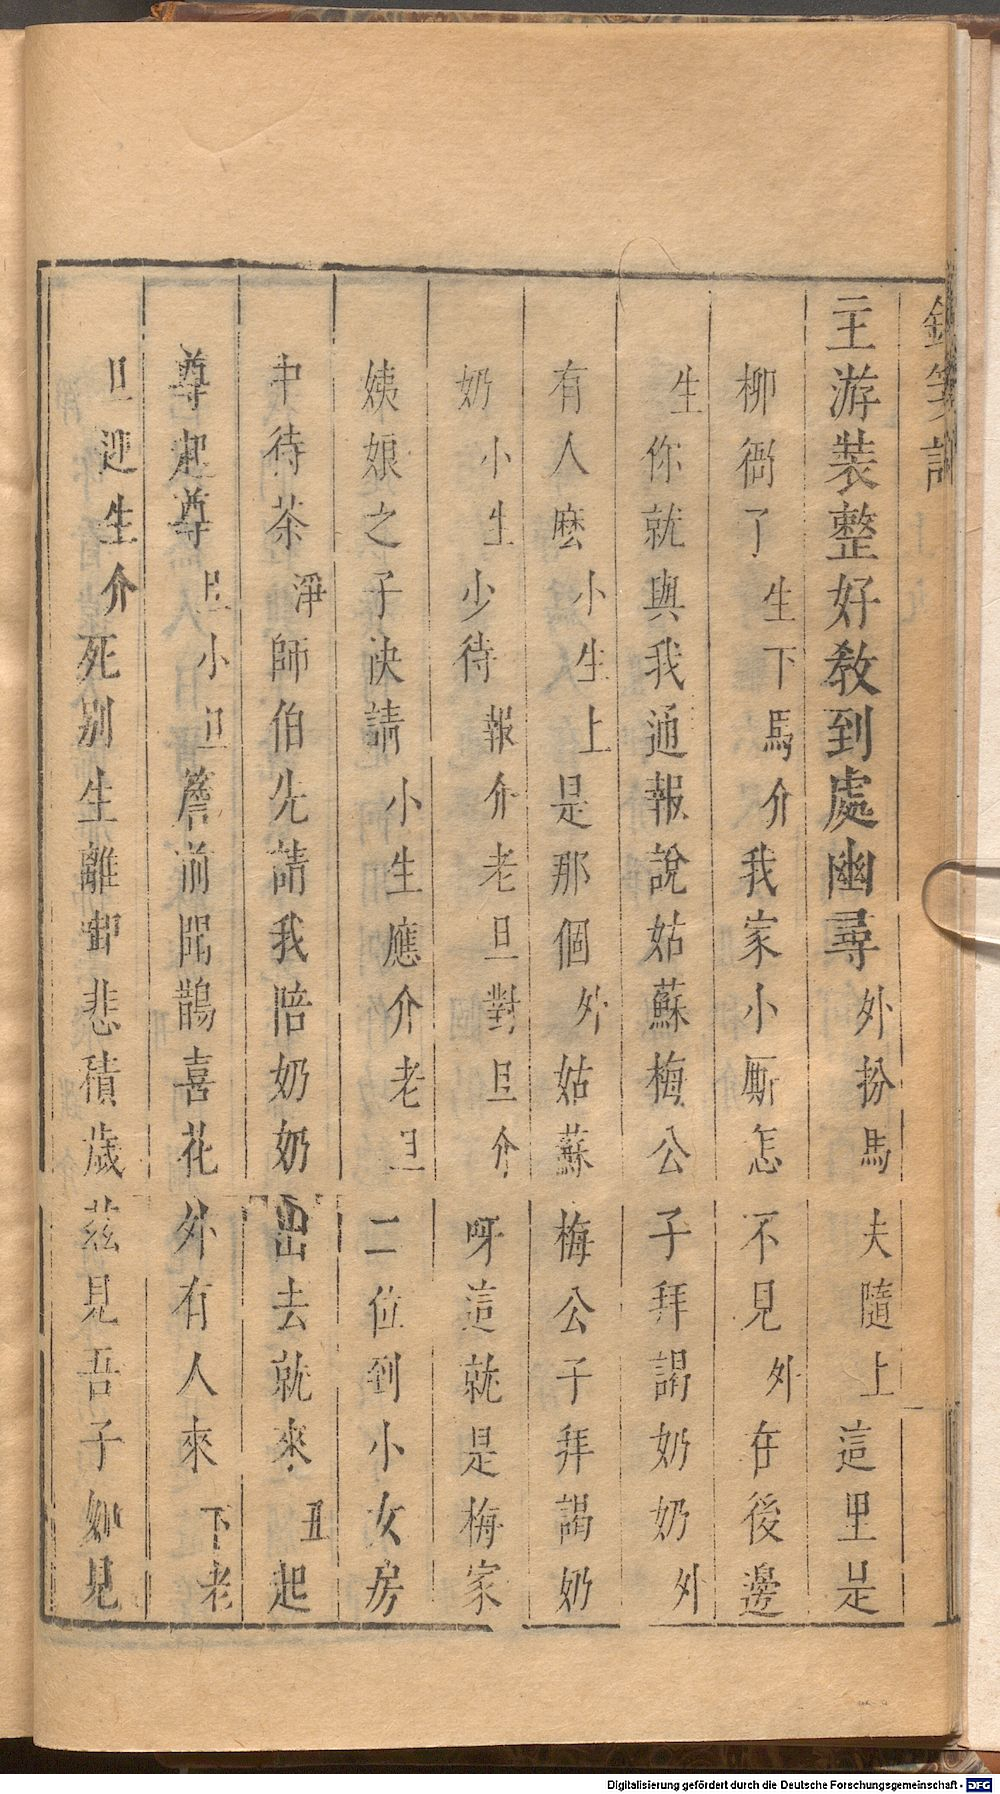 主游裝整好教到處幽尋外扮馬夫隨上這里是
柳衙了生下馬介我家小厮怎不見外在後邊
生你就與我通報說姑蘇梅公子拜謁奶奶外
有人麽小生上是那個外姑蘇梅公子拜謁奶
奶小生少待報介老旦對旦介呀這就是梅家
姨娘之子快請小生應介老旦二位到小女房
中待茶淨師伯先請我陪奶奶出去就來丑起
尊起尊旦小旦簷前聞鵲喜花外有人來下老
旦迎生介死别生離却悲積歳茲見吾子如見
Digitalisierung gefördert durch die Deutsche Forschungsgemeinschaft - DFG